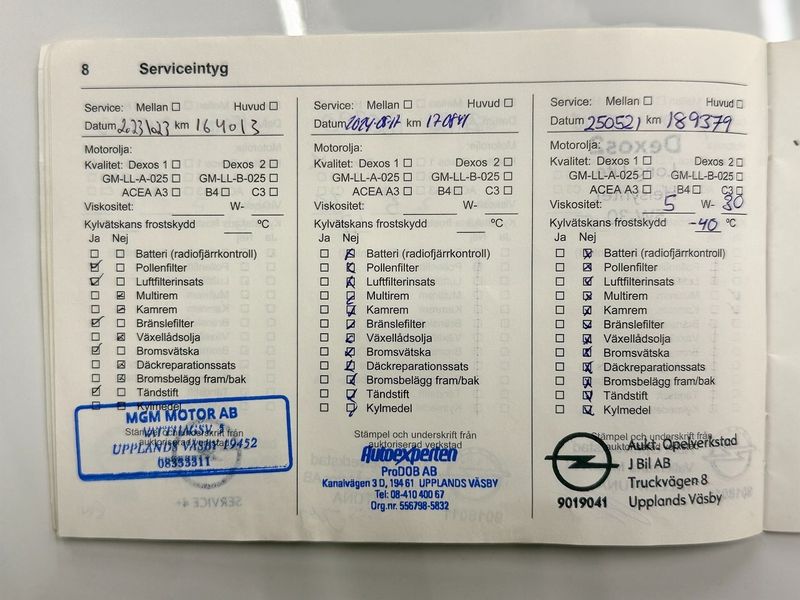 8 Serviceintyg
Service: Mellan ☐ Huvud ☐
Datum km 164013
Motorolja:
Kvalitet: Dexos 1 ☐ Dexos 2 ☐
GM-LL-A-025 ☐ GM-LL-B-025 ☐
ACEA A3 ☐ B4 ☐ C3 ☐
Viskositet: W-
Kylvätskans frostskydd °C
Ja Nej
☐ ☐ Batteri (radiofjärrkontroll)
☑ ☐ Pollenfilter
☑ ☐ Luftfilterinsats
☐ ☑ Multirem
☐ ☑ Kamrem
☑ ☐ Bränslefilter
☐ ☑ Växellådsolja
☑ ☐ Bromsvätska
☐ ☑ Däckreparationssats
☐ ☑ Bromsbelägg fram/bak
☑ ☐ Tändstift
Kylmedel
Stämpel och underskrift från
auktoriserad verkstad
MGM MOTOR AB
UPPLANDS VÄSBY 19452
08333311
SERVICE 4+
Service: Mellan ☐ Huvud ☐
Datum km
Motorolja:
Kvalitet: Dexos 1 ☐ Dexos 2 ☐
GM-LL-A-025 ☐ GM-LL-B-025 ☐
ACEA A3 ☐ B4 ☐ C3 ☐
Viskositet: W-
Kylvätskans frostskydd °C
Ja Nej
☐ ☑ Batteri (radiofjärrkontroll)
☐ ☑ Pollenfilter
☐ ☑ Luftfilterinsats
☐ ☑ Multirem
☐ ☑ Kamrem
☐ ☑ Bränslefilter
☐ ☑ Växellådsolja
☐ ☑ Bromsvätska
☐ ☑ Däckreparationssats
☐ ☑ Bromsbelägg fram/bak
☐ ☑ Tändstift
☐ ☑ Kylmedel
Stämpel och underskrift från
auktoriserad verkstad
Autoexperten
ProDOB AB
Kanalvägen 3 D, 194 61 UPPLANDS VÄSBY
Tel: 08-410 400 67
Org.nr. 556798-5832
Service: Mellan ☐ Huvud ☐
Datum 250521 km 189379
Motorolja:
Kvalitet: Dexos 1 ☐ Dexos 2 ☐
GM-LL-A-025 ☐ GM-LL-B-025 ☐
ACEA A3 ☐ B4 ☐ C3 ☐
Viskositet: 5 W- 30
Kylvätskans frostskydd -40 °C
Ja Nej
☐ ☑ Batteri (radiofjärrkontroll)
☐ ☑ Pollenfilter
☐ ☑ Luftfilterinsats
☐ ☑ Multirem
☐ ☑ Kamrem
☐ ☑ Bränslefilter
☐ ☑ Växellådsolja
☐ ☑ Bromsvätska
☐ ☑ Däckreparationssats
☐ ☑ Bromsbelägg fram/bak
☐ ☑ Tändstift
☐ ☑ Kylmedel
Stämpel och underskrift från
auktoriserad verkstad
Aukt. Opelverkstad
J Bil AB
Truckvägen 8
9019041 Upplands Väsby